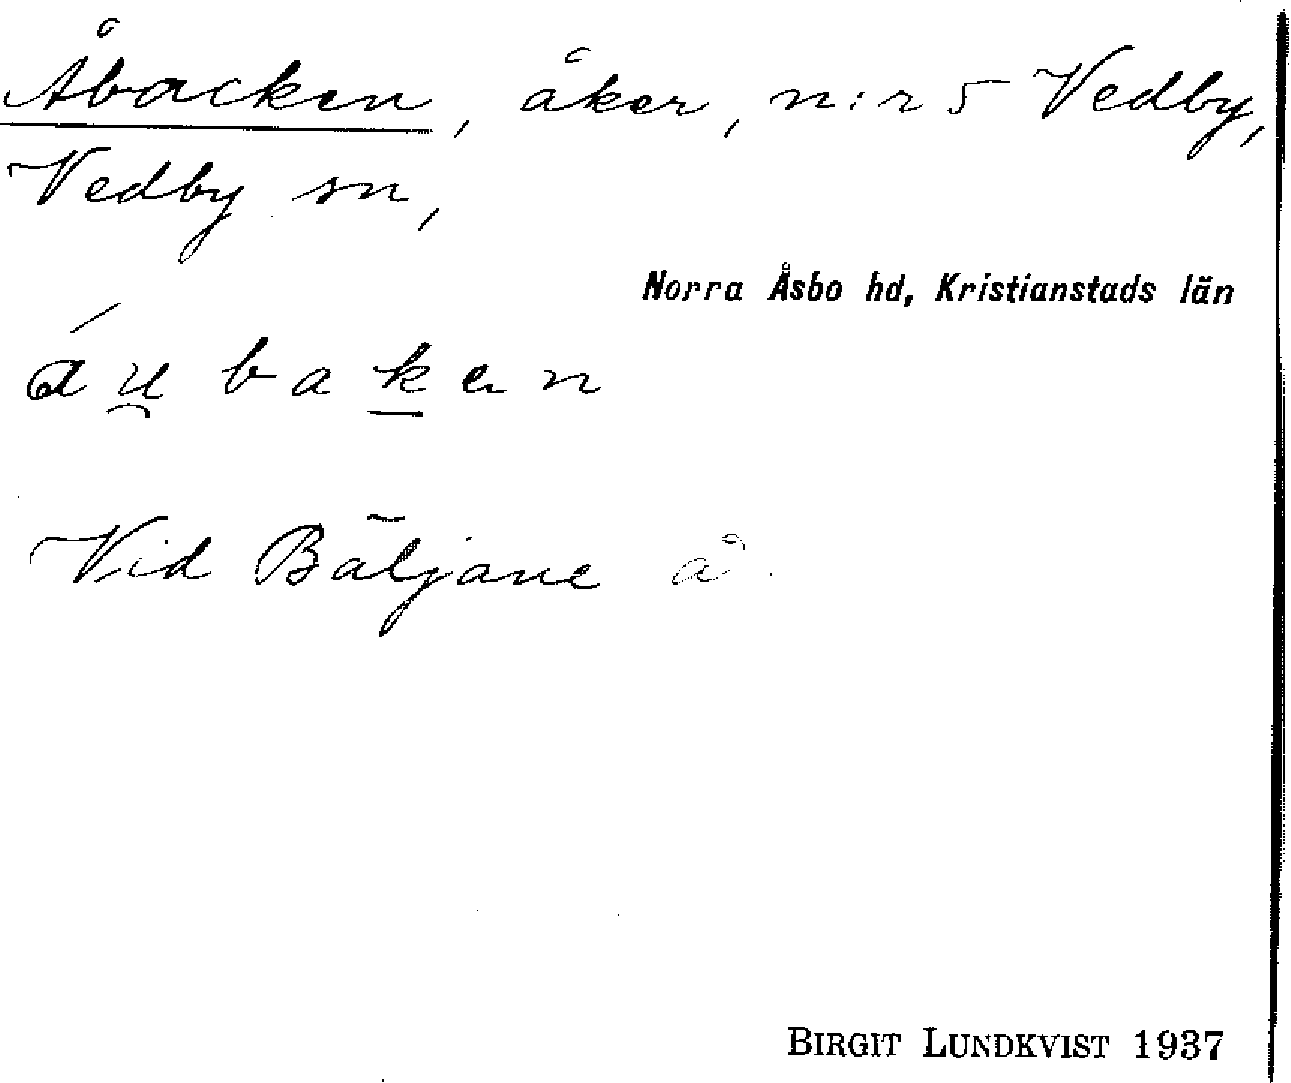 Åbacken, åker, n:r 5 Vedby,
Vedby sn,
Norra Åsbo hd, Kristianstads län
áu̯bak̲ən
Vid Bäljane å.
BIRGIT LUNDKVIST 1937